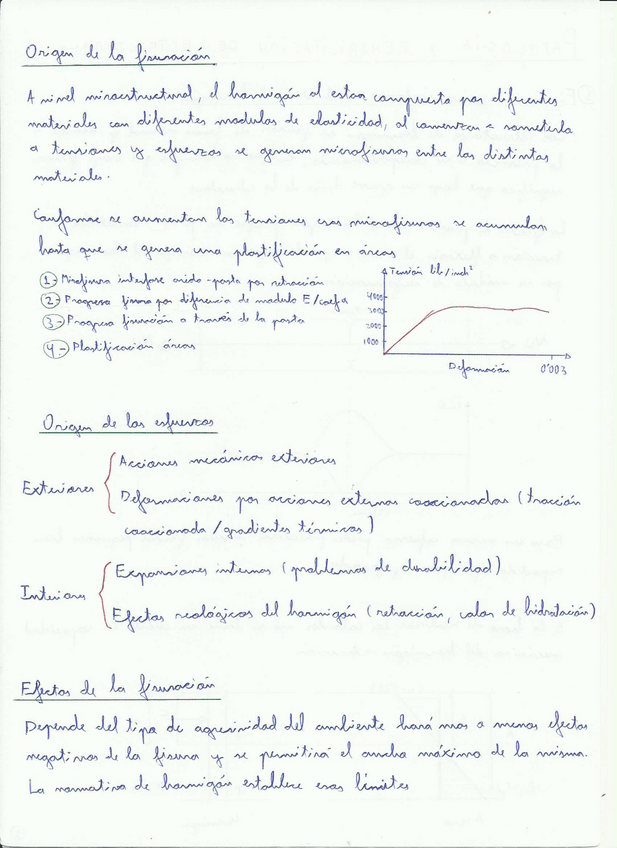 Origen de la fisuración
A nivel microestructural, el hormigón al estar compuesto por diferentes
materiales con diferentes modulos de elasticidad, al comenzar a someterlo
a tensiones y esfuerzos se generan microfisuras entre los distintos
materiales.
Conforme se aumentan las tensiones esas microfisuras se acumulan
hasta que se genera una plastificación en áreas
1- Microfisura interfase arido-pasta por retracción
2- Progresa fisura por diferencia de modulo E/coef α
3- Progresa fisuración a través de la pasta
4.- Plastificación áreas
Tensión lib/inch²
4000
3000
2000
1000
Deformación 0'003
Origen de los esfuerzos
Exteriores
Acciones mecánicas exteriores
Deformaciones por acciones externas coaccionadas (tracción
coaccionada/gradientes térmicos)
Interiores
Expansiones internas (problemas de durabilidad)
Efectos reológicos del hormigón (retracción, calor de hidratación)
Efectos de la fisuración
Depende del tipo de agresividad del ambiente hará mas o menos efectos
negativos de la fisura y se permitirá el ancho máximo de la misma.
La normativa de hormigón establece esos límites